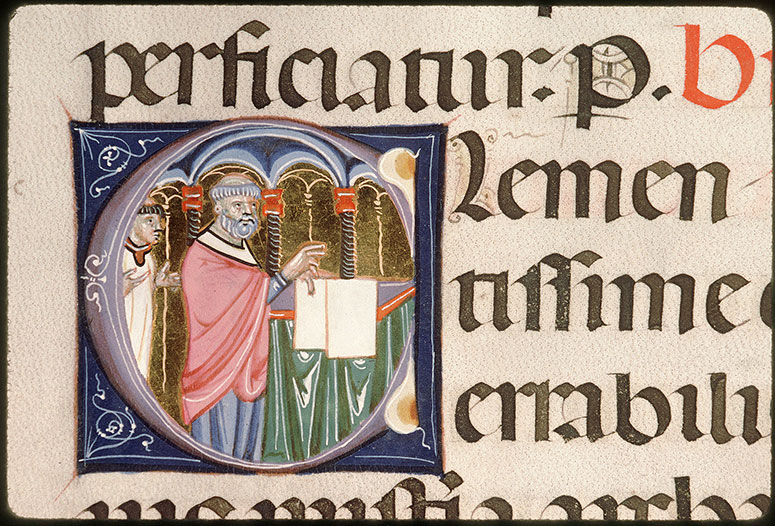 perficiatur: P.
CLemen
tissime
errabili